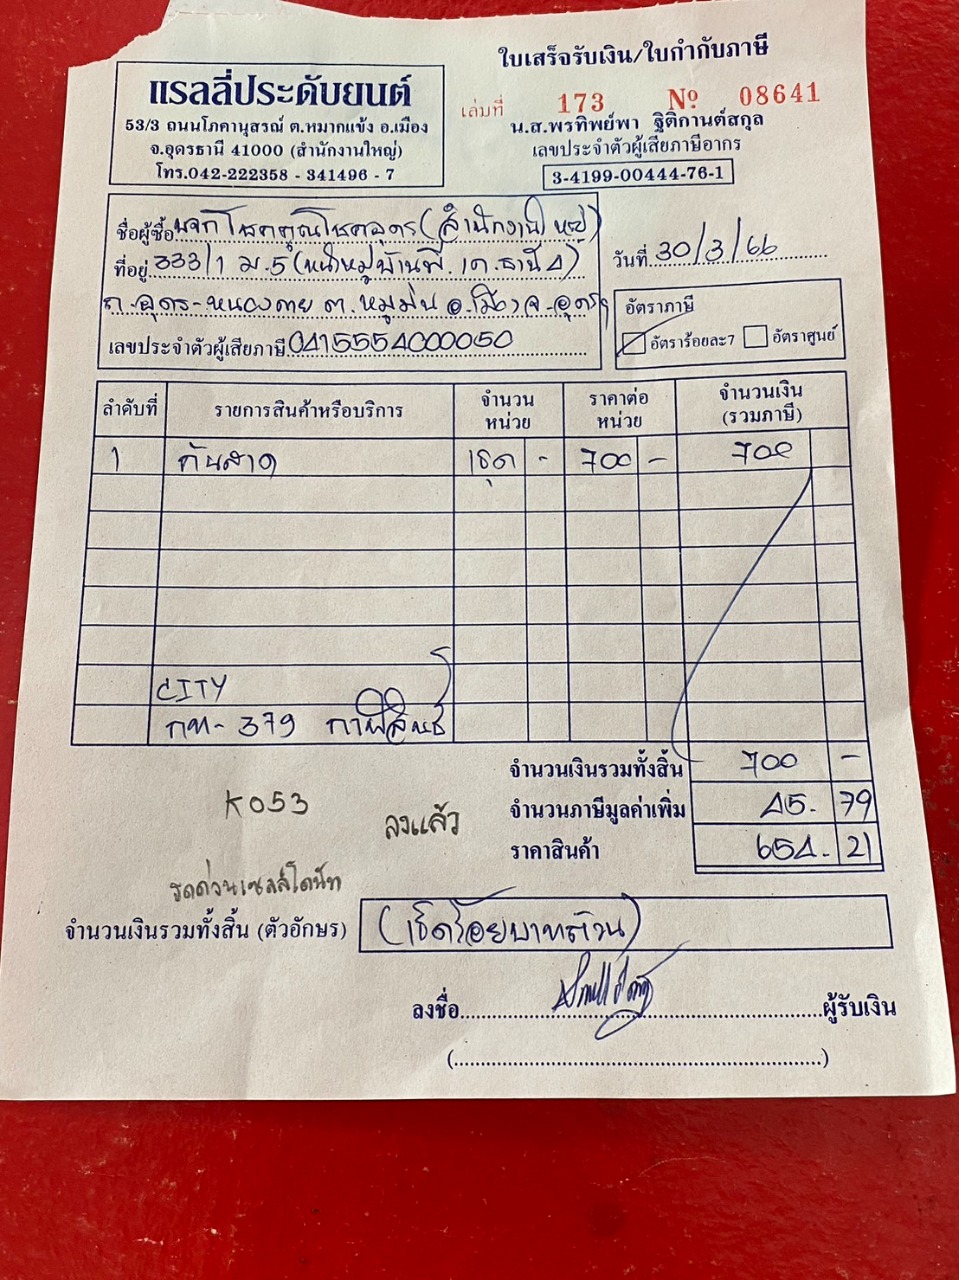 ใบเสร็จรับเงิน/ใบกำกับภาษี
แรลลี่ประดับยนต์
53/3 ถนนโภคานุสรณ์ ต.หมากแข้ง อ.เมือง
จ.อุดรธานี 41000 (สำนักงานใหญ่)
โทร.042-222358 - 341496 - 7
เล่มที่ 173 Nº 08641
น.ส.พรทิพย์พา ฐิติกานต์สกุล
เลขประจำตัวผู้เสียภาษีอากร
3-4199-00444-76-1
ชื่อผู้ซื้อ บจก โชคคูณโชคอุดร (สำนักงานใหญ่)
ที่อยู่ 333/1 ม.5 (หน้าหมู่บ้านพี.เค.ธานี 4)
ถ.อุดร-หนองคาย ต.หมูม่น อ.เมือง จ.อุดรฯ
เลขประจำตัวผู้เสียภาษี 0415554000050
วันที่ 30/3/66
อัตราภาษี
อัตราร้อยละ7 อัตราศูนย์
ลำดับที่ รายการสินค้าหรือบริการ จำนวนหน่วย ราคาต่อหน่วย จำนวนเงิน (รวมภาษี)
1 กันสาด 1ชุด - 700 - 700
CITY
กท- 379 กาฬสินธุ์
จำนวนเงินรวมทั้งสิ้น 700 -
จำนวนภาษีมูลค่าเพิ่ม 45. 79
ราคาสินค้า 654. 21
K053
ลงแล้ว
รถด่วนเซลล์โดนัท
จำนวนเงินรวมทั้งสิ้น (ตัวอักษร) (เจ็ดร้อยบาทถ้วน)
ลงชื่อ ผู้รับเงิน